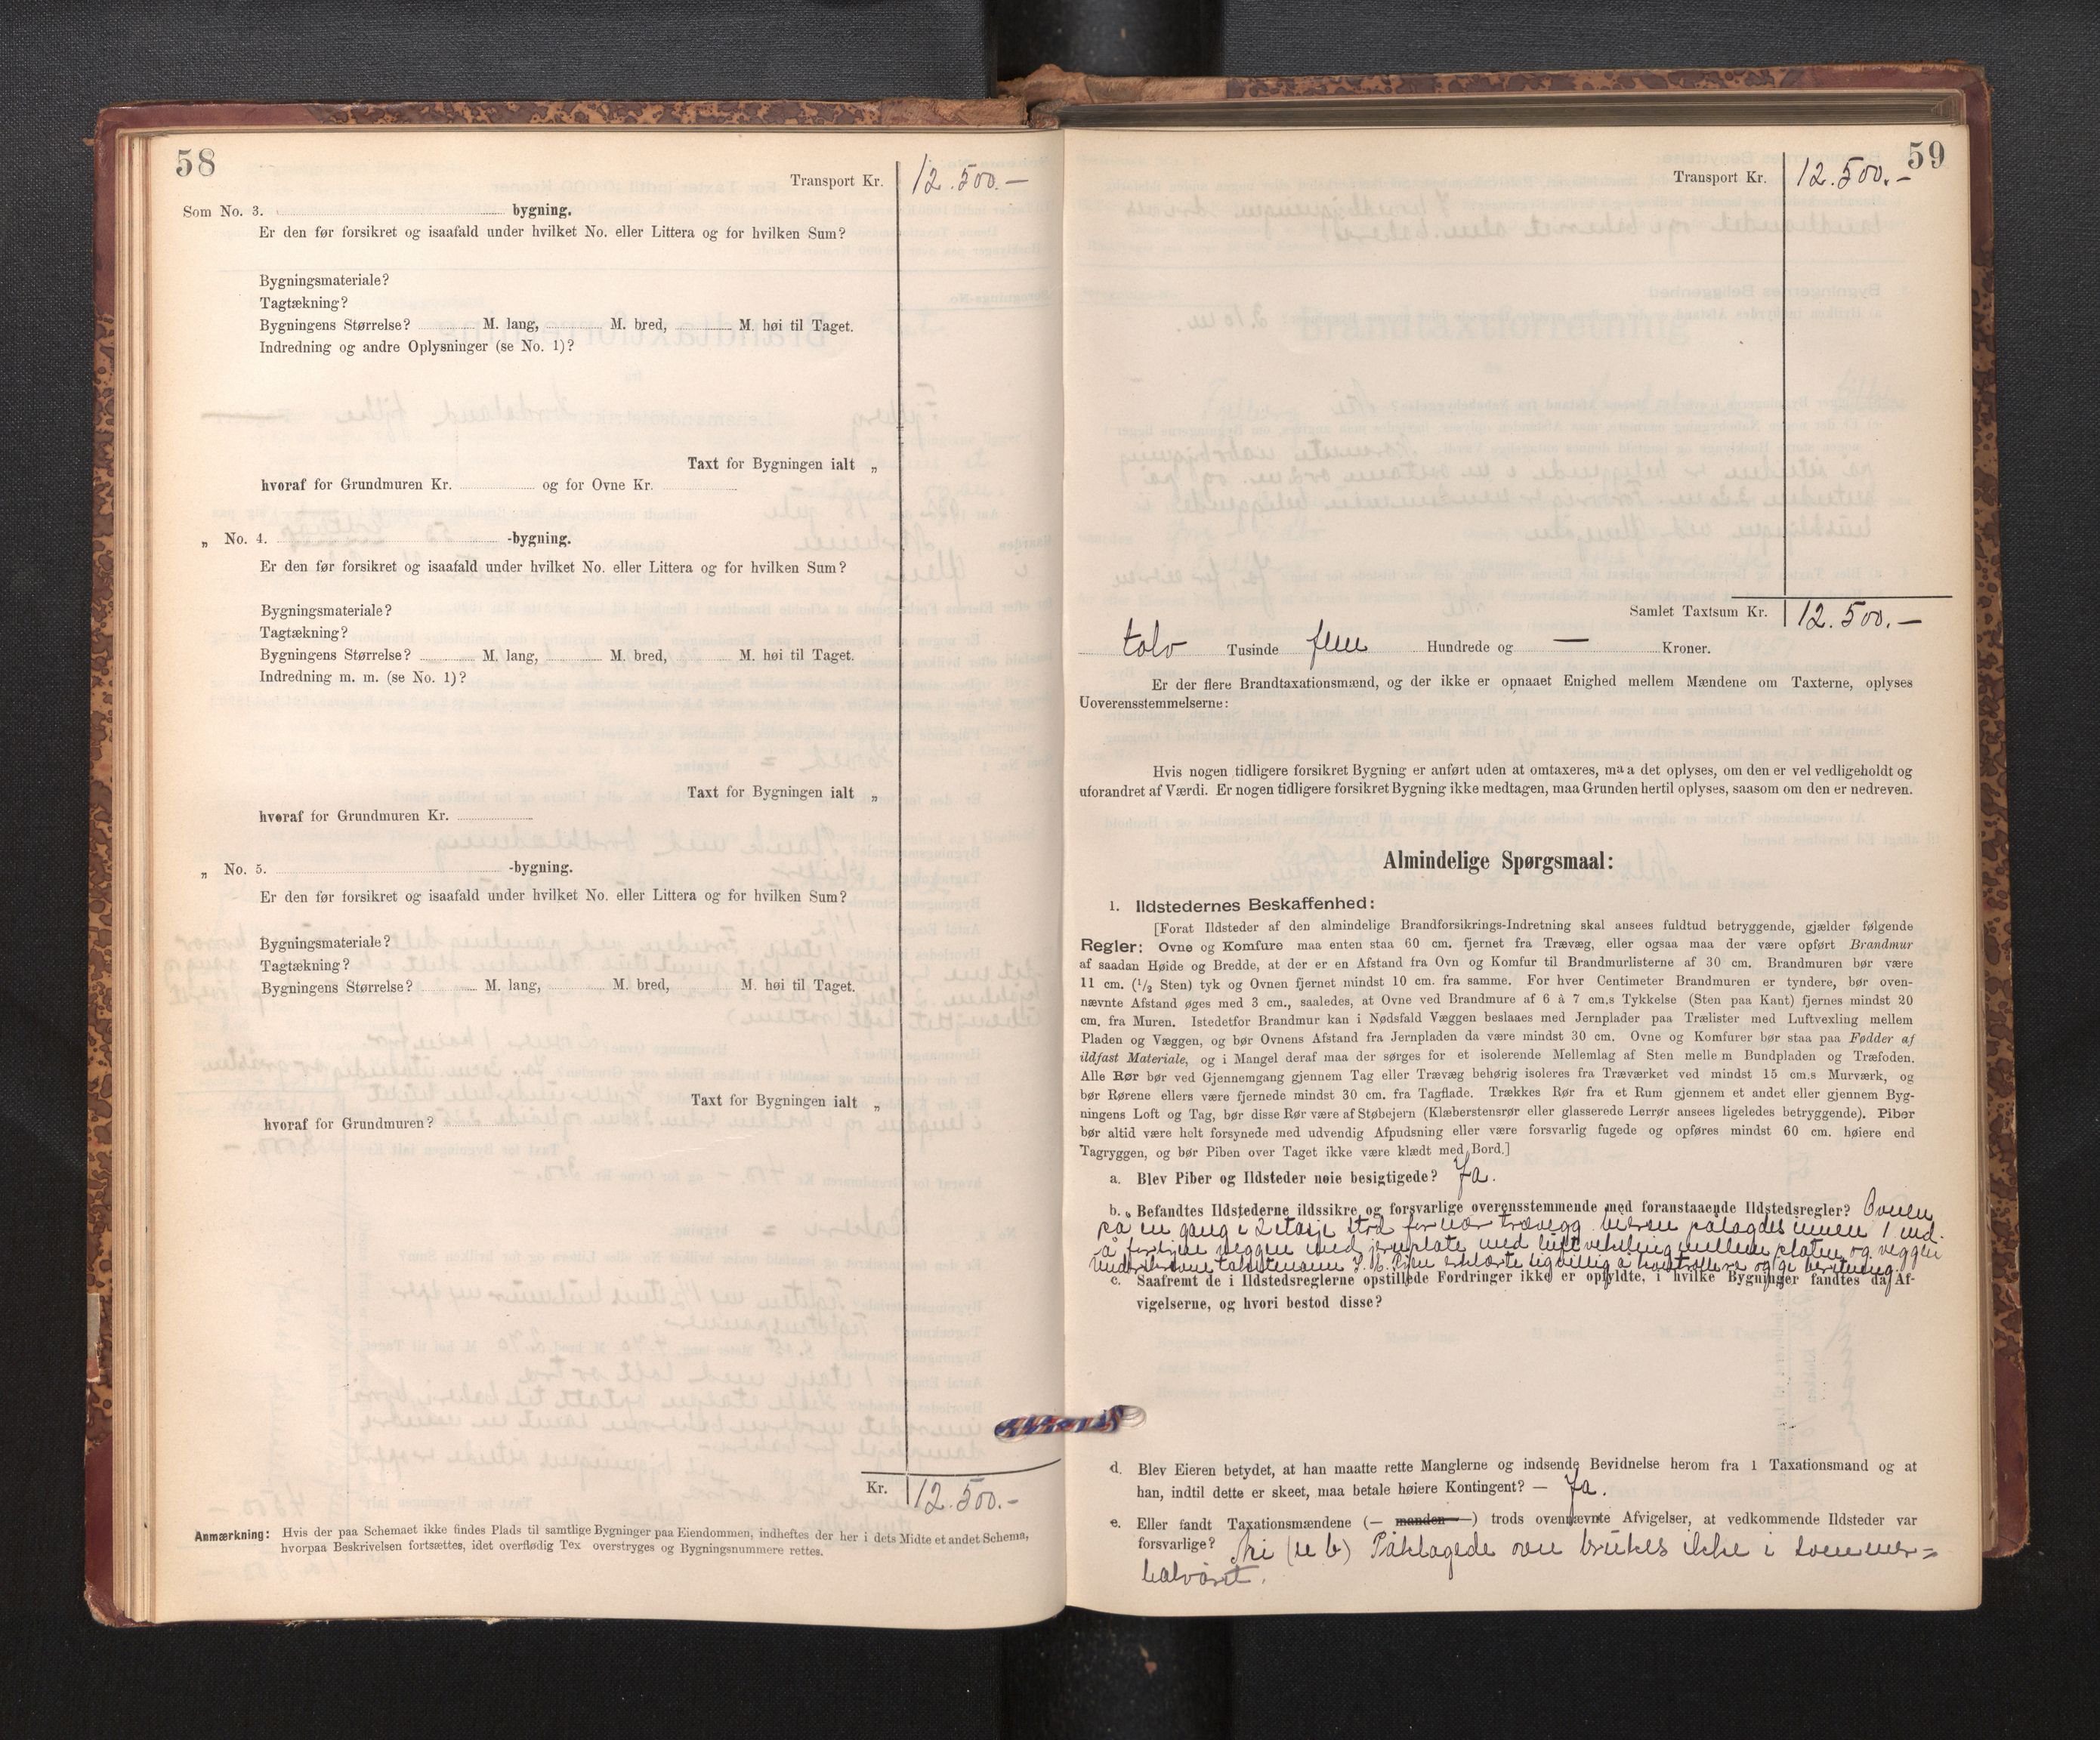 58
Transport Kr. 12.500.—
Som No. 3. bygning.
Er den før forsikret og isaafald under hvilket No. eller Littera og for hvilken Sum?
Bygningsmateriale?
Tagtækning?
Bygningens Størrelse? M. lang, M. bred, M. høi til Taget.
Indredning og andre Oplysninger (se No. 1)?
Taxt for Bygningen ialt „
hvoraf for Grundmuren Kr. og for Ovne Kr.
„ No. 4. -bygning.
Er den før forsikret og isaafald under hvilket No. eller Littera og for hvilken Sum?
Bygningsmateriale?
Tagtækning?
Bygningens Størrelse? M. lang, M. bred, M. høi til Taget.
Indredning m. m. (se No. 1)?
Taxt for Bygningen ialt „
hvoraf for Grundmuren Kr.
„ No. 5. -bygning.
Er den før forsikret og isaafald under hvilket No. eller Littera og for hvilken Sum?
Bygningsmateriale?
Tagtækning?
Bygningens Størrelse? M. lang, M. bred, M. høi til Taget.
Taxt for Bygningen ialt „
hvoraf for Grundmuren?
Kr. 12.500.—
Anmærkning: Hvis der paa Schemaet ikke findes Plads til samtlige Bygninger paa Eiendommen, indheftes der her i dets Midte et andet Schema,
hvorpaa Beskrivelsen fortsættes, idet overflødig Tex overstryges og Bygningsnummere rettes.
59
Transport Kr. 12.500.—
Samlet Taxtsum Kr. 12.500.—
tolv Tusinde fem Hundrede og — Kroner.
Er der flere Brandtaxationsmænd, og der ikke er opnaaet Enighed mellem Mændene om Taxterne, oplyses
Uoverensstemmelserne:
Hvis nogen tidligere forsikret Bygning er anført uden at omtaxeres, maa det oplyses, om den er vel vedligeholdt og
uforandret af Værdi. Er nogen tidligere forsikret Bygning ikke medtagen, maa Grunden hertil oplyses, saasom om den er nedreven.
Almindelige Spørgsmaal:
1. Ildstedernes Beskaffenhed:
[Forat Ildsteder af den almindelige Brandforsikrings-Indretning skal ansees fuldtud betryggende, gjælder følgende
Regler: Ovne og Komfure maa enten staa 60 cm. fjernet fra Trævæg, eller ogsaa maa der være opført Brandmur
af saadan Høide og Bredde, at der er en Afstand fra Ovn og Komfur til Brandmurlisterne af 30 cm. Brandmuren bør være
11 cm. (1/2 Sten) tyk og Ovnen fjernet mindst 10 cm. fra samme. For hver Centimeter Brandmuren er tyndere, bør oven-
nævnte Afstand øges med 3 cm., saaledes, at Ovne ved Brandmure af 6 à 7 cm.s Tykkelse (Sten paa Kant) fjernes mindst 20
cm. fra Muren. Istedetfor Brandmur kan i Nødsfald Væggen beslaaes med Jernplader paa Trælister med Luftvexling mellem
Pladen og Væggen, og bør Ovnens Afstand fra Jernpladen da være mindst 30 cm. Ovne og Komfurer bør staa paa Fødder af
ildfast Materiale, og i Mangel deraf maa der sørges for et isolerende Mellemlag af Sten mellem Bundpladen og Træfoden.
Alle Rør bør ved Gjennemgang gjennem Tag eller Trævæg behørig isoleres fra Træværket ved mindst 15 cm.s Murværk, og
bør Rørene ellers være fjernede mindst 30 cm. fra Tagflade. Trækkes Rør fra et Rum gjennem et andet eller gjennem Byg-
ningens Loft og Tag, bør disse Rør være af Støbejern (Klæberstensrør eller glasserede Lerrør ansees ligeledes betryggende). Piber
bør altid være helt forsynede med udvendig Afpudsning eller være forsvarlig fugede og opføres mindst 60 cm. høiere end
Tagryggen, og bør Piben over Taget ikke være klædt med Bord.]
a. Blev Piber og Ildsteder nøie besigtigede? Ja.
b. Befandtes Ildstederne ildssikre og forsvarlige overensstemmende med foranstaaende Ildstedsregler? Ovnen
på en gang i 2 etasje stod for nær trævegg. Eieren pålagdes innen 1 md.
å forsyne veggen med jernplate med luftveksling mellem platen og veggen
Underskrevne takstmann erklærte sig villig å kontrollere og gi beretning.
c. Saafremt de i Ildstedsreglerne opstillede Fordringer ikke er opfyldte, i hvilke Bygninger fandtes da Af-
vigelserne, og hvori bestod disse?
d. Blev Eieren betydet, at han maatte rette Manglerne og indsende Bevidnelse herom fra 1 Taxationsmand og at
han, indtil dette er skeet, maa betale høiere Kontingent? — Ja.
e. Eller fandt Taxationsmændene (— manden —) trods ovennævnte Afvigelser, at vedkommende Ildsteder var
forsvarlige? Nei (se b) Påklagede ovn brukes ikke i sommer=
halvåret.